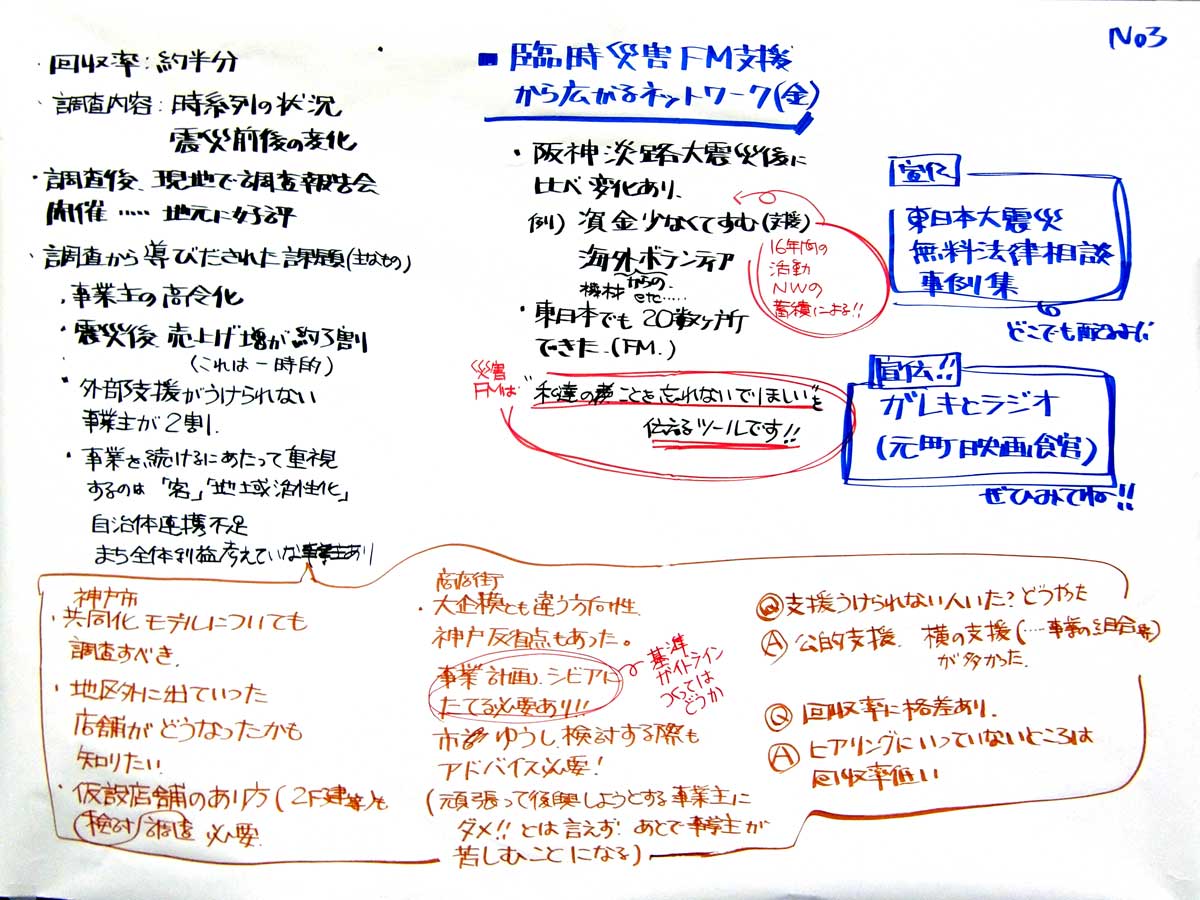 No3
・回収率：約半分
・調査内容：時系列の状況
震災前後の変化
・調査後、現地で調査報告会
開催 ‥‥ 地元に好評
・調査から導びだされた課題(主なもの)
・事業主の高令化
・震災後、売上げ増が約3割
(これは一時的)
・外部支援がうけられない
事業主が2割.
・事業を続けるにあたって重視
するのは「客」「地域活性化」
自治体連携不足
まち全体利益考えていな事業主あり
■ 臨時災害FM支援
から広がるネットワーク(金)
・阪神淡路大震災後に
比べ変化あり、
例) 資金少なくてすむ(支援)
海外ボランティア
からの
機材 etc‥‥
16年間の
活動
NWの
蓄積による!!
・東日本でも20数ヶ所
できた.(FM.)
災害
FMは
"私達のことを忘れないでりましい"を
伝えるツールです!!
宣伝
東日本大震災
無料法律相談
事例集
どこでも配ります
宣伝!!
ガレキとラジオ
(元町映画館)
ぜひみてね!!
神戸市
・共同化モデルについても
調査すべき.
・地区外に出ていった
店舗がどうなったかも
知りたい
・仮設店舗のあり方(2F建等)も
検討/調査 必要.
商店街
・大企模とも違う方向性.
神戸反省点もあった。
事業計画、シビアに
たてる必要あり!!
基準
ガイドライン
つくっては
どうか
市 ゆうし、検討する際も
アドバイス必要!
(頑張って復興しようとする事業主に
ダメ!! とは言えず あとで事業主が
苦しむことになる)
Q 支援うけられない人いた?どうやった
A 公的支援、横の支援(‥‥事業の組合等)
が多かった.
Q 回収率に格差あり.
A ヒアリングにいっていないところは
回収率低い